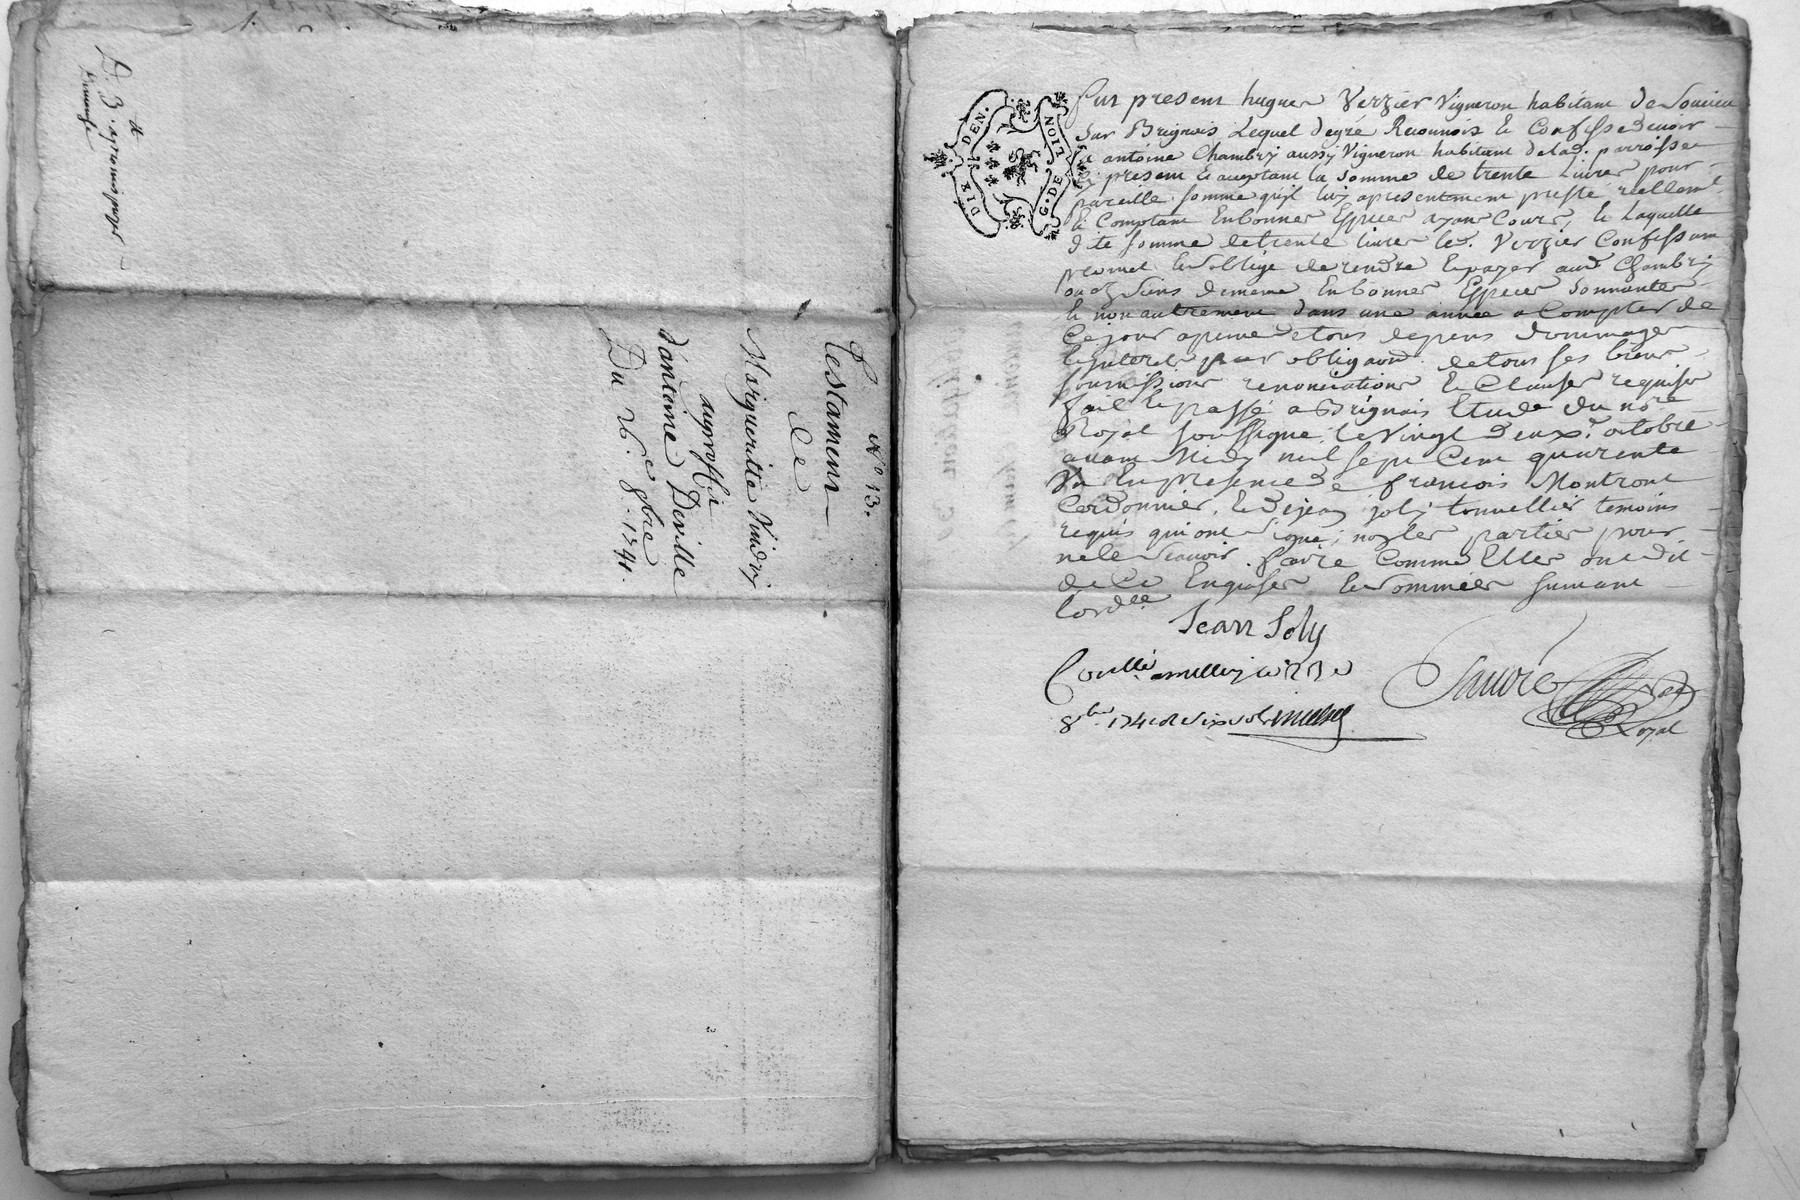 N° 13.
Testament
De
Marguerite Vindry
auproffit
d'antoine Deville
Du 26.e 8bre
1741.
DIX DEN.
G. DE LION
Fut present hugues Verzier Vigneron habitant de Soucieu
Sur Brignais Lequel degré Reconnois et Confesse devoir
a antoine Chambry aussy Vigneron habitant delad. parroisse
present et aceptant la somme de trente Livres pour
pareille somme qu'il luy apresentement presté reellem.t
et Comptant En bonnes Especes ayant Cours, et Laquelle
dite somme de trente livres led. Verzier Confessant
promet et s'oblige de rendre et payer aud. Chambry
ou aux siens de meme En bonnes Especes sonnantes
et non autrement dans une année a Compter de
Ce jour a peine de tous depens dommages
et interets par obligaon. de tous ses biens
soumissions renonciations et Clauses requises
fait et passé a Brignais Etude du no.re
Royal soussigné, le Vingt deux.e octobre
avant Midy mil sept Cent quarente
Un En presence de françois Montront
Cordonnier, et de jean joly tonnellier temoins
requis qui ont signé, non les parties pour
ne le sçavoir faire Comme Elles ont dit
de Ce Enquises et sommées suivant
lord.ce
Jean Joly
8bre 1741
Royal